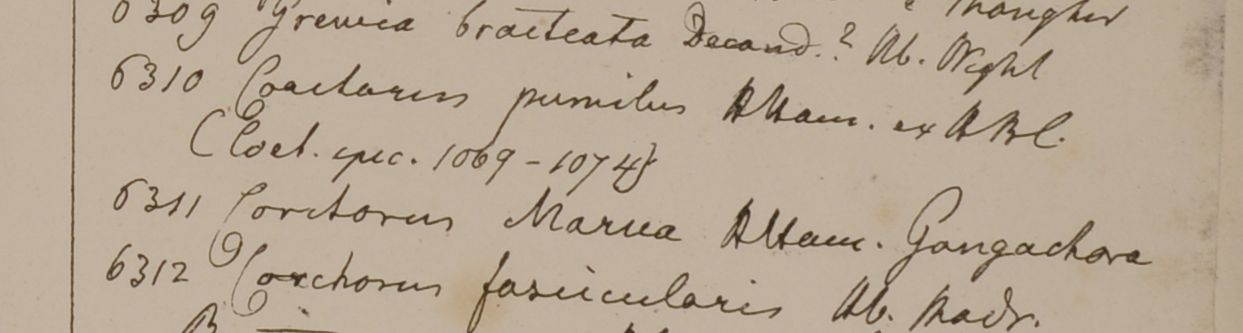 6309 Grewia bracteata Decand.? Hb. Wight
6310 Corchorus pumilus HHam. ex HBC.
(Coel. spec. 1069 - 1074)
6311 Corchorus Marua HHam. Gongachora
6312 Corchorus fascicularis Hb. Madr.